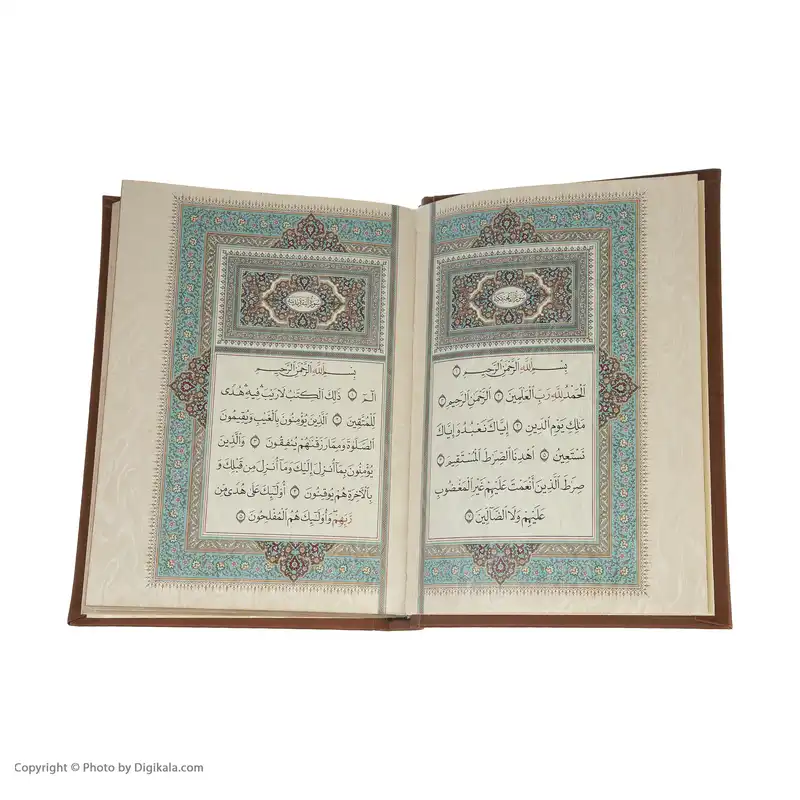 بِسْمِ اللَّهِ الرَّحْمَٰنِ الرَّحِيمِ ١
الْحَمْدُ لِلَّهِ رَبِّ الْعَالَمِينَ ٢ الرَّحْمَٰنِ الرَّحِيمِ ٣
مَالِكِ يَوْمِ الدِّينِ ٤ إِيَّاكَ نَعْبُدُ وَإِيَّاكَ
نَسْتَعِينُ ٥ اهْدِنَا الصِّرَاطَ الْمُسْتَقِيمَ ٦
صِرَاطَ الَّذِينَ أَنْعَمْتَ عَلَيْهِمْ غَيْرِ الْمَغْضُوبِ
عَلَيْهِمْ وَلَا الضَّالِّينَ ٧
بِسْمِ اللَّهِ الرَّحْمَٰنِ الرَّحِيمِ
الٓمٓ ١ ذَٰلِكَ الْكِتَابُ لَا رَيْبَ فِيهِ هُدًى
لِلْمُتَّقِينَ ٢ الَّذِينَ يُؤْمِنُونَ بِالْغَيْبِ وَيُقِيمُونَ
الصَّلَوٰةَ وَمِمَّا رَزَقْنَاهُمْ يُنْفِقُونَ ٣ وَالَّذِينَ
يُؤْمِنُونَ بِمَا أُنْزِلَ إِلَيْكَ وَمَا أُنْزِلَ مِنْ قَبْلِكَ وَ
بِالْآخِرَةِ هُمْ يُوقِنُونَ ٤ أُولَٰئِكَ عَلَىٰ هُدًى مِنْ
رَبِّهِمْ وَأُولَٰئِكَ هُمُ الْمُفْلِحُونَ ٥
Copyright © Photo by Digikala.com